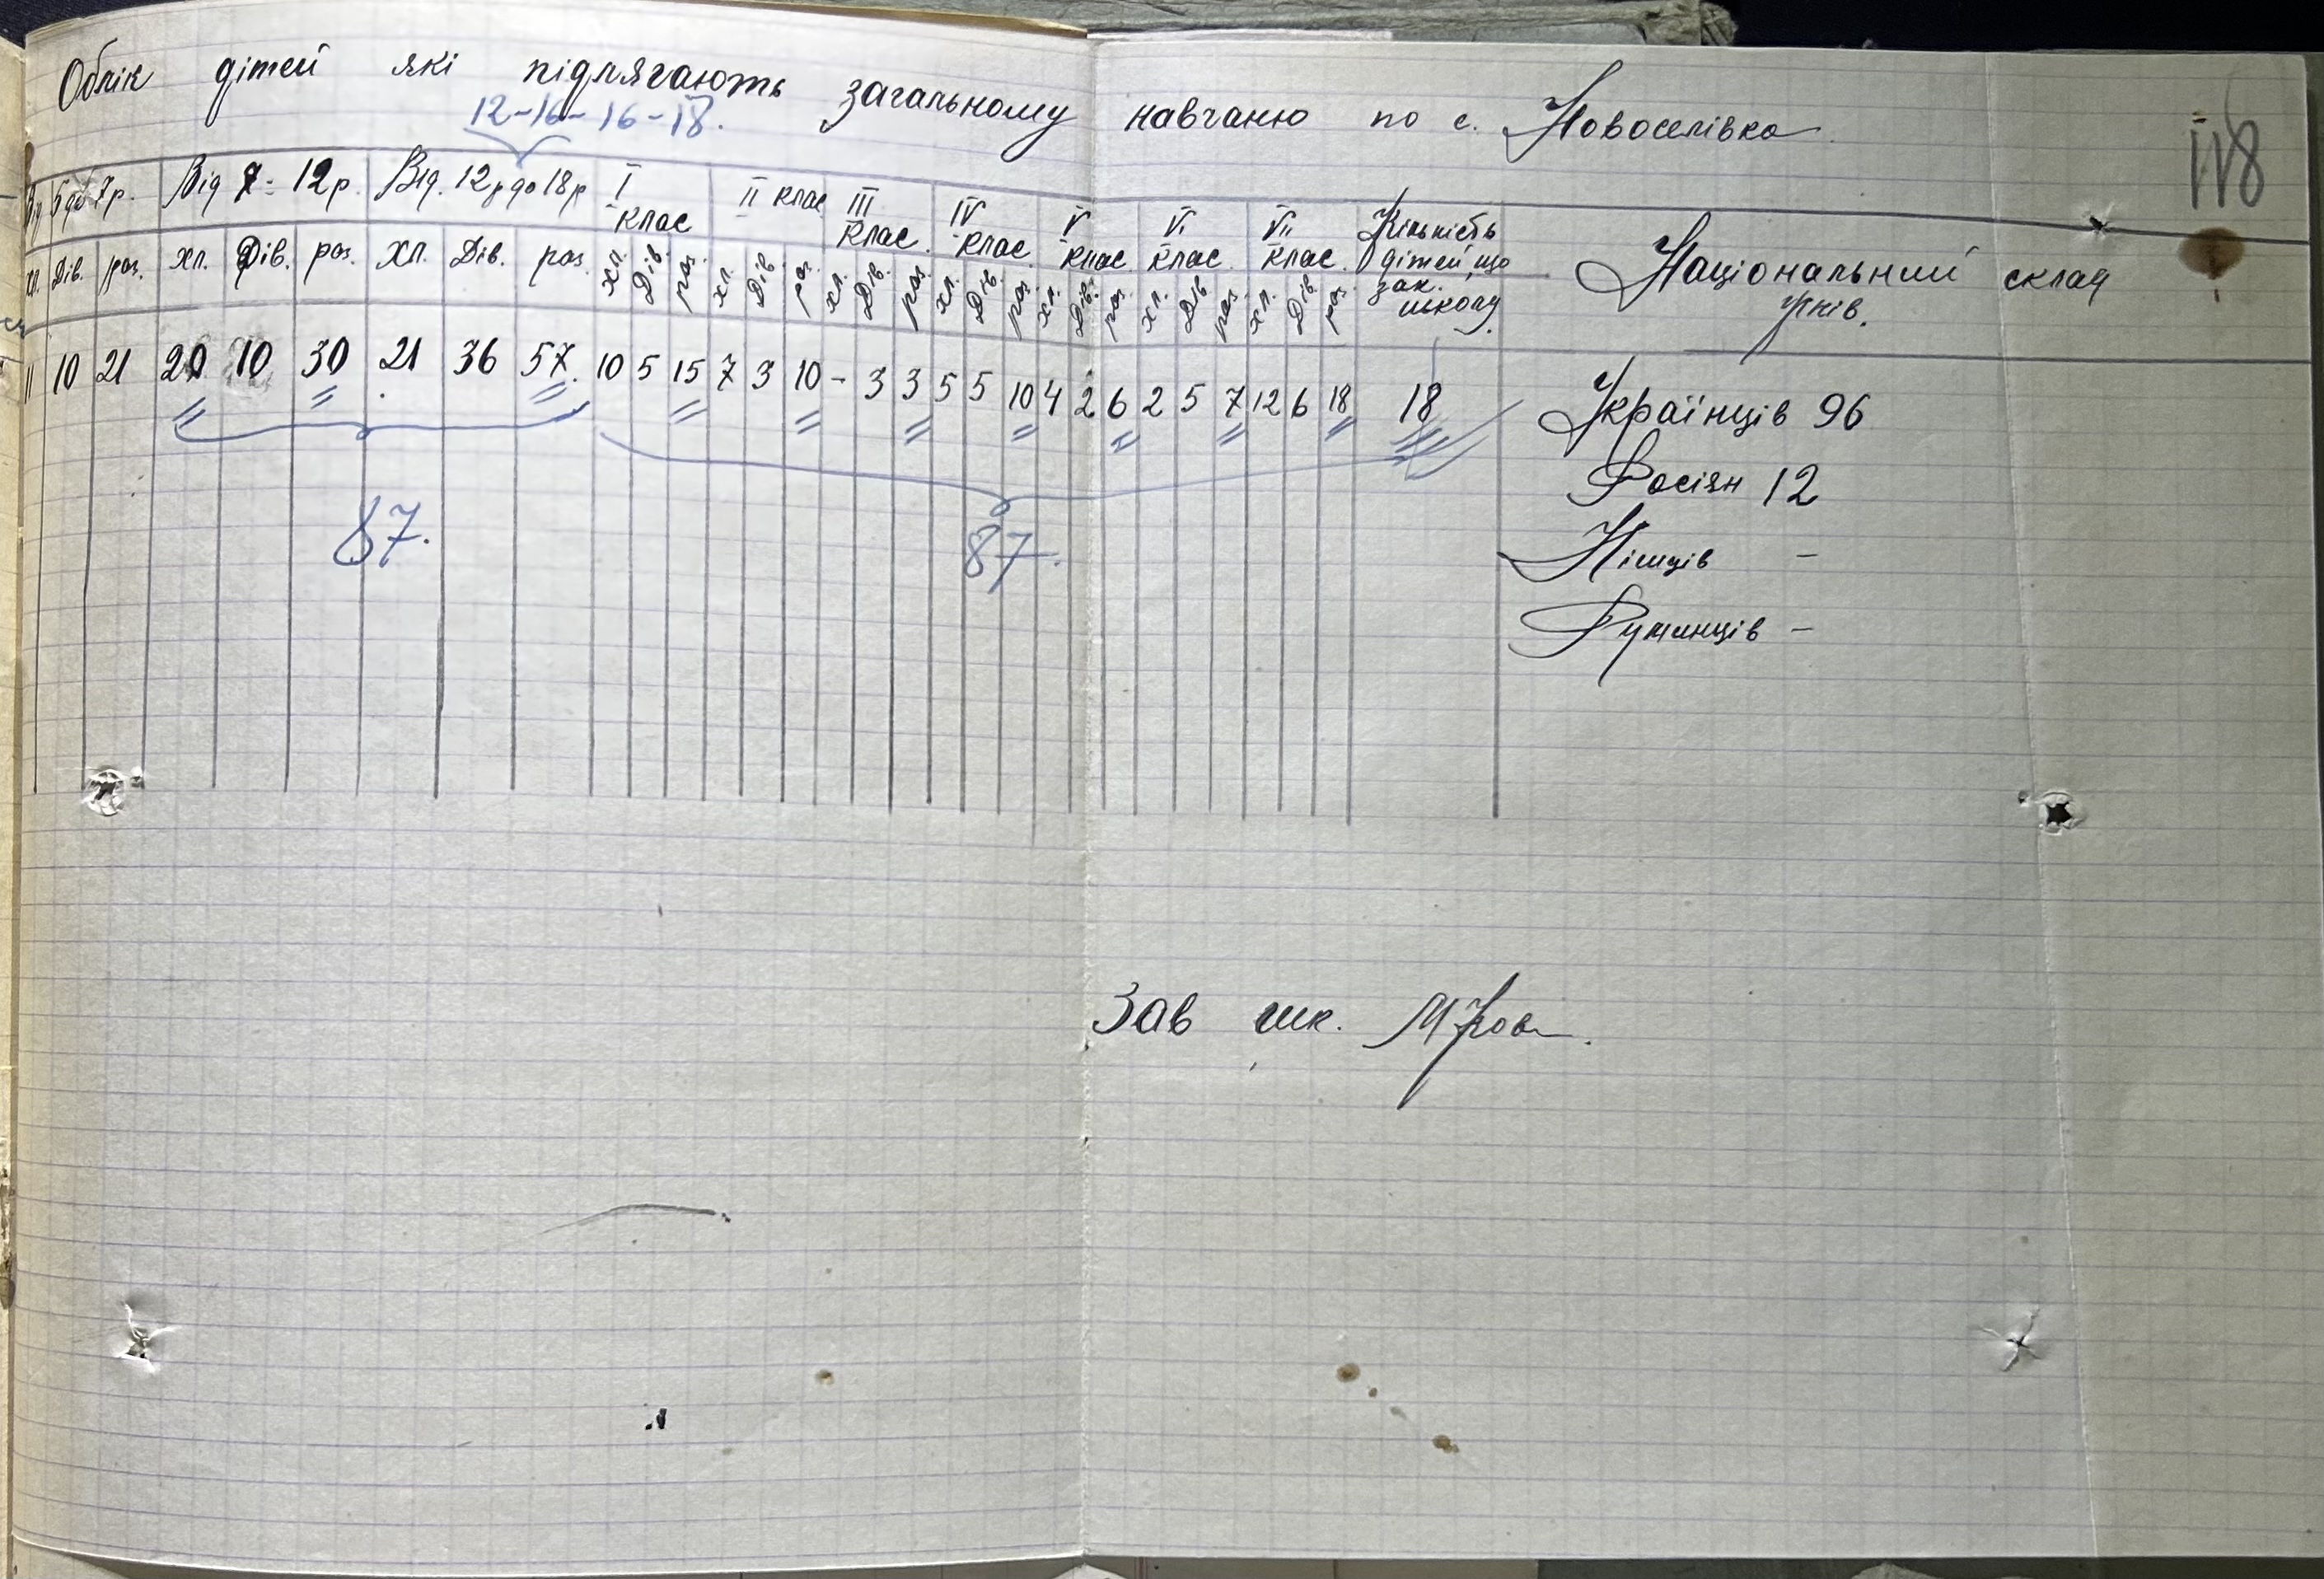 Облік дітей які підлягають загальному навчаню по с. Новоселівка
12-16-16-18.
118
Від 5 до 7р. Від 7-12р. Від. 12р до 18р I клас II клас III клас IV клас V клас VI клас VII клас Кількість дітей, що зак. школу. Національний склад учнів.
хл. Дів. раз. хл. Дів. раз. хл. Дів. раз. хл. Дів. раз. хл. Дів. раз. хл. Дів. раз. хл. Дів. раз. хл. Дів. раз. хл. Дів. раз. хл. Дів. раз.
11 10 21 20 10 30 21 36 57. 10 5 15 7 3 10 - 3 3 5 5 10 4 2 6 2 5 7 12 6 18 18
Українців 96
Росіян 12
Німців -
Руминців -
87. 87.
Зав шк.